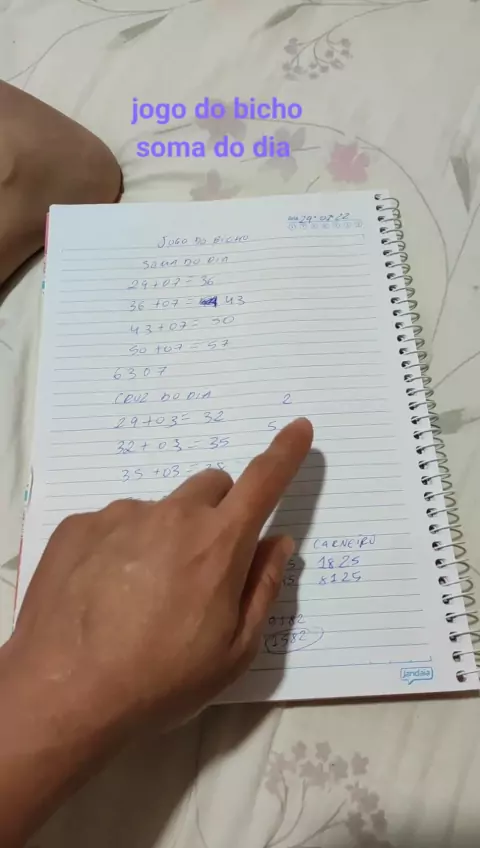 jogo do bicho
soma do dia
29-07-22
JOGO DO BICHO
SOMA DO DIA
29+07=36
36+07= 43
43+07=50
50+07=57
6307
CRUZ DO DIA
29+03=32
2
32+03=35
5
35+03=38
CARNEIRO
1825
8125
1582
jandaia